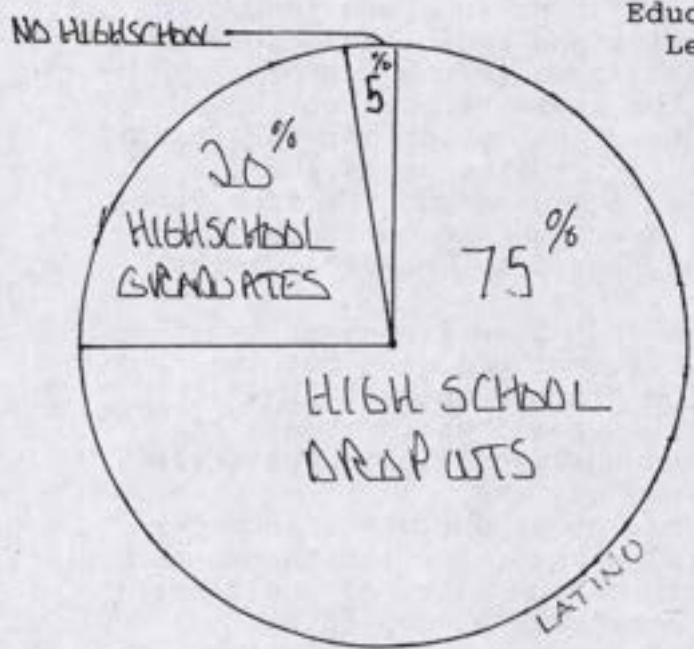 Educ
Le
NO HIGHSCHOOL
5%
20%
HIGHSCHOOL
GRADUATES
75%
HIGH SCHOOL
DROPOUTS
LATINO